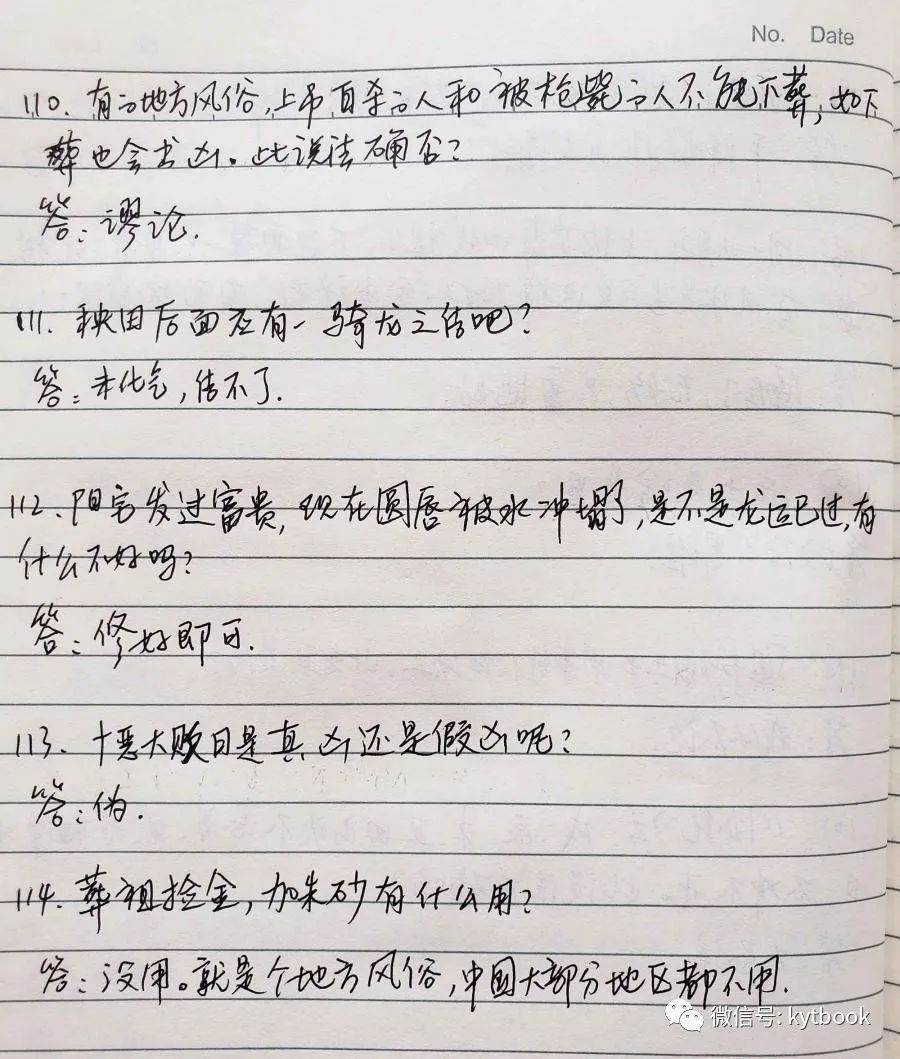 No. Date
110. 有的地方风俗,上吊自杀的人和被枪毙的人不能下葬,如下
葬也会出凶。此说法确否?
答:谬论.
111. 秧田后面还有一骑龙之结吧?
答:未化气,结不了.
112、阳宅发过富贵,现在圆唇被水冲塌了,是不是龙运已过,有
什么不好吗?
答:修好即可.
113. 十恶大败日是真凶还是假凶呢?
答:伪.
114. 葬祖捡金,加朱砂有什么用?
答:没用。就是个地方风俗,中国大部分地区都不用.
微信号: kytbook